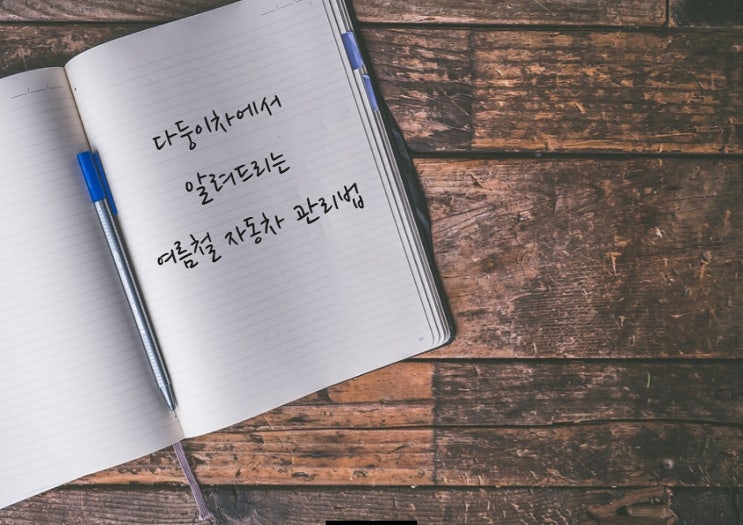 다둥이차에서
알려드리는
여름철 자동차 관리법